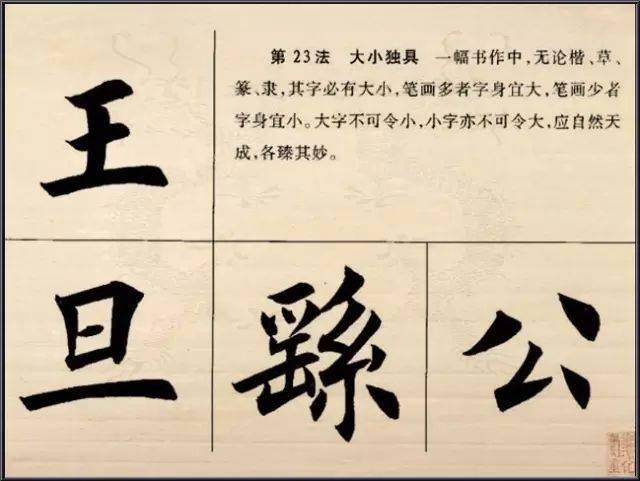 王
第23法 大小独具 一幅书作中,无论楷、草、
篆、隶,其字必有大小,笔画多者字身宜大,笔画少者
字身宜小。大字不可令小,小字亦不可令大,应自然天
成,各臻其妙。
旦 繇 公